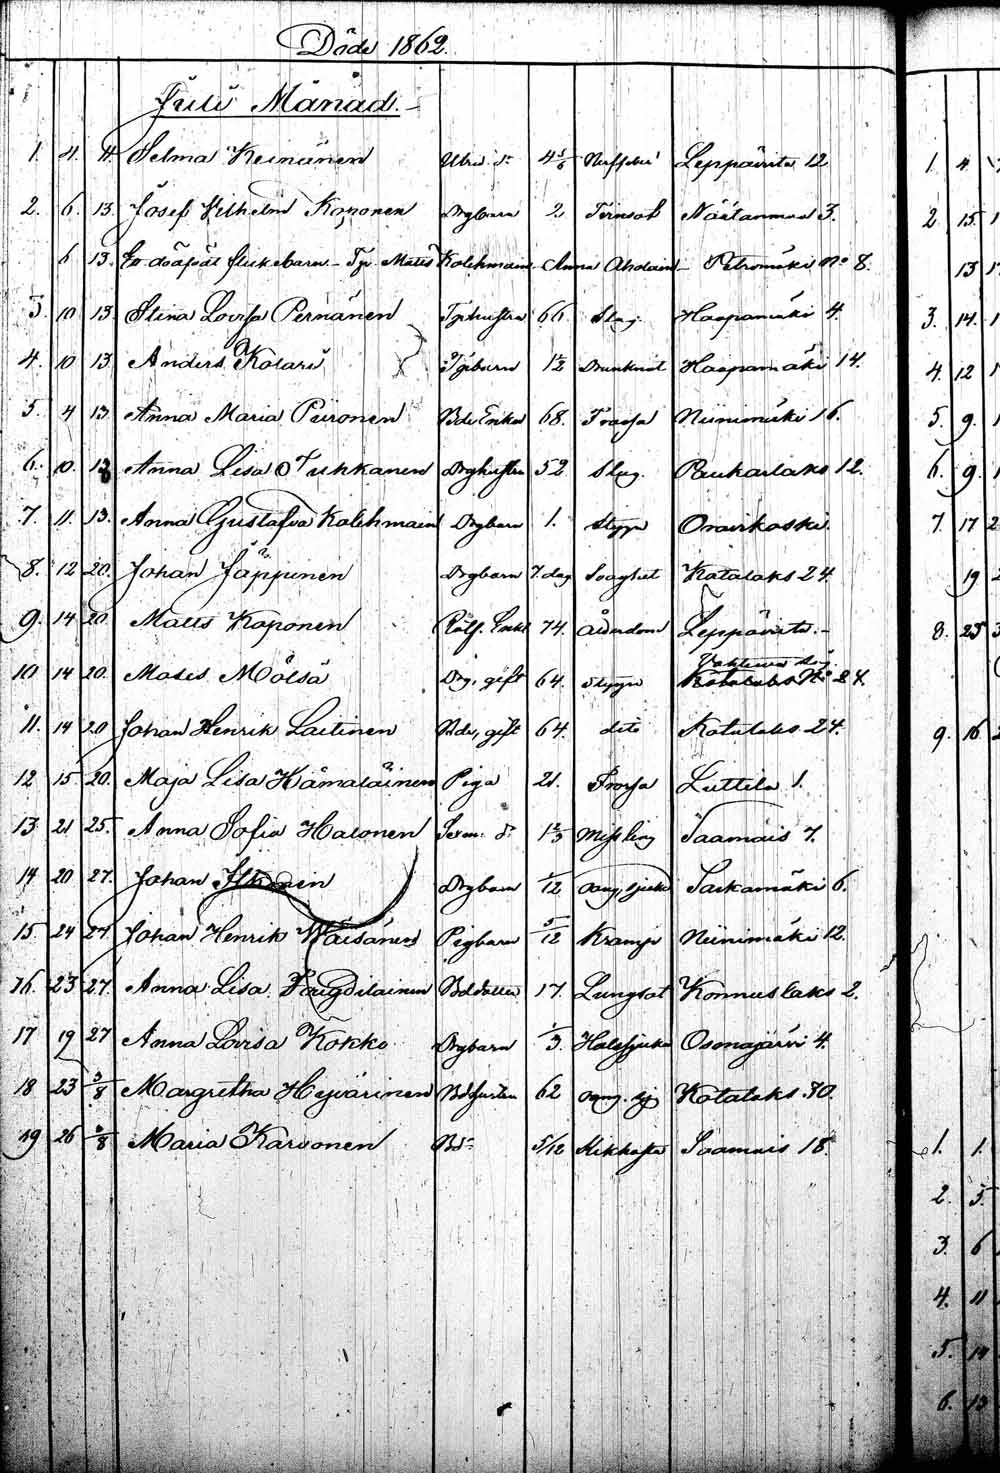 Döde 1862.
Juli Månad.
1. 4. 11. Selma Keinänen 4 5/6 Leppävirta 12
2. 6. 13. Josef Vilhelm Koponen Drgbarn 2. Tvinsot Näätänmaa 3.
6 13. Ett dödfödt flickebarn - Tjr. Matts Kolehmain - Anna Aholain - Petromäki No 8.
3. 10 13. Stina Lovisa Pernänen Tjrhustru 66. Slag. Haapamäki 4.
4. 10 13. Anders Kolari Tjrbarn 1 1/2 Drunknat Haapamäki 14.
5. 4 13. Anna Maria Piironen Bde Enka 68. Frossa Niinimäki 16.
6. 10. 13 Anna Lisa Tukkanen Drghustru 52 Slag. Paukarlaks 12.
7. 11. 13. Anna Gustafva Kolehmain Drgbarn 1. Stygn Oravikoski.
8. 12 20. Johan Jäppinen Drgbarn 7. dag Svaghet Kotalaks 24.
9. 14 20. Matts Koponen 74. Ålderdom Leppävirta.
10 14 20. Moses Mölsä Drg. gift 64. Stygn No 24.
11. 14 20 Johan Henrik Laitinen Bde, gift 64. dito Kotalaks 24.
12 15 20. Maja Lisa Hämäläinen Piga 21. Frossa Luttila 1.
13 21 25. Anna Sofia Halonen 1 2/3 Missling Saamais 7.
14 20 27. Johan Drgbarn 1/12 Sarkamäki 6.
15. 24 27 Johan Henrik Wäisänen Pigbarn 5/12 Kramp Niinimäki 12.
16. 23 27. Anna Lisa Bddotter 17. Lungsot Konnuslaks 2.
17 19 27 Anna Lovisa Kokko Drgbarn 1/3. Halssjuka Osmajärvi 4.
18 23 3/8 Margretha Heyvärinen Bdhustru 62 Kotalaks 30.
19 26 3/8 Maria Karvonen Bd: 5/12 Kikhosta Saamais 18.
1. 4.
2. 15.
13
3. 14.
4. 12
5. 9.
6. 9.
7. 17
19
8. 25
9. 16
1. 1.
2. 5.
3. 6
4. 11
5. 14
6. 13